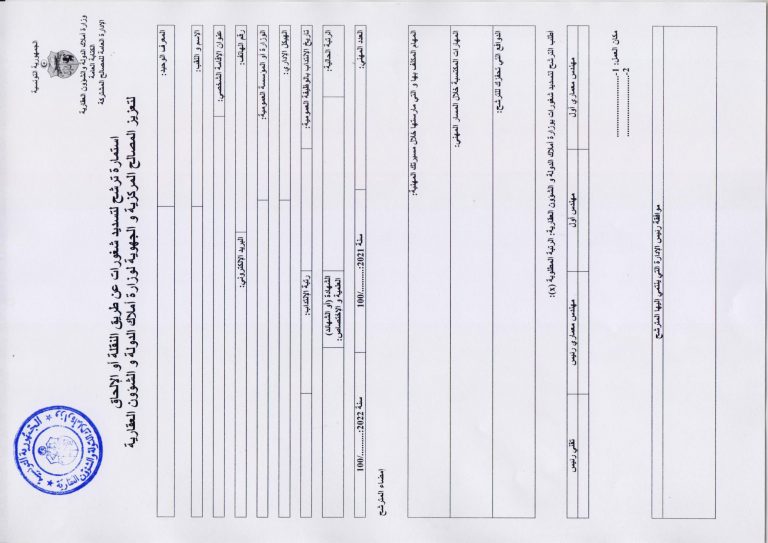 الجمهورية التونسية
وزارة أملاك الدولة والشؤون العقارية
الكتابة العامة
الإدارة العامة للمصالح المشتركة
استمارة ترشح لتسديد شغورات عن طريق النقلة أو الإلحاق
لتعزيز المصالح المركزية و الجهوية لوزارة أملاك الدولة و الشؤون العقارية
المعرف الوحيد:
الاسم و اللقب:
عنوان الإقامة الشخصي:
رقم الهاتف:
البريد الإلكتروني:
الوزارة أو المؤسسة العمومية:
الهيكل الإداري:
تاريخ الإنتداب بالوظيفة العمومية:
رتبة الانتداب:
الرتبة الحالية:
الشهادة (أو الشهائد)
العلمية و الاختصاص:
العدد المهني:
سنة 2021:........../100
سنة 2022:........../100
إمضاء المترشح
المهام المكلف بها و التي مارستها خلال مسيرتك المهنية:
المهارات المكتسبة خلال المسار المهني:
الدوافع التي تحفزك للترشح:
اطلب الترشح لتسديد شغورات بوزارة أملاك الدولة و الشؤون العقارية: الرتبة المطلوبة (x):
مهندس معماري أول
مهندس أول
مهندس معماري رئيس
تقني رئيس
مكان العمل: 1-....................
2-....................
موافقة رئيس الإدارة التي ينتمي إليها المترشح